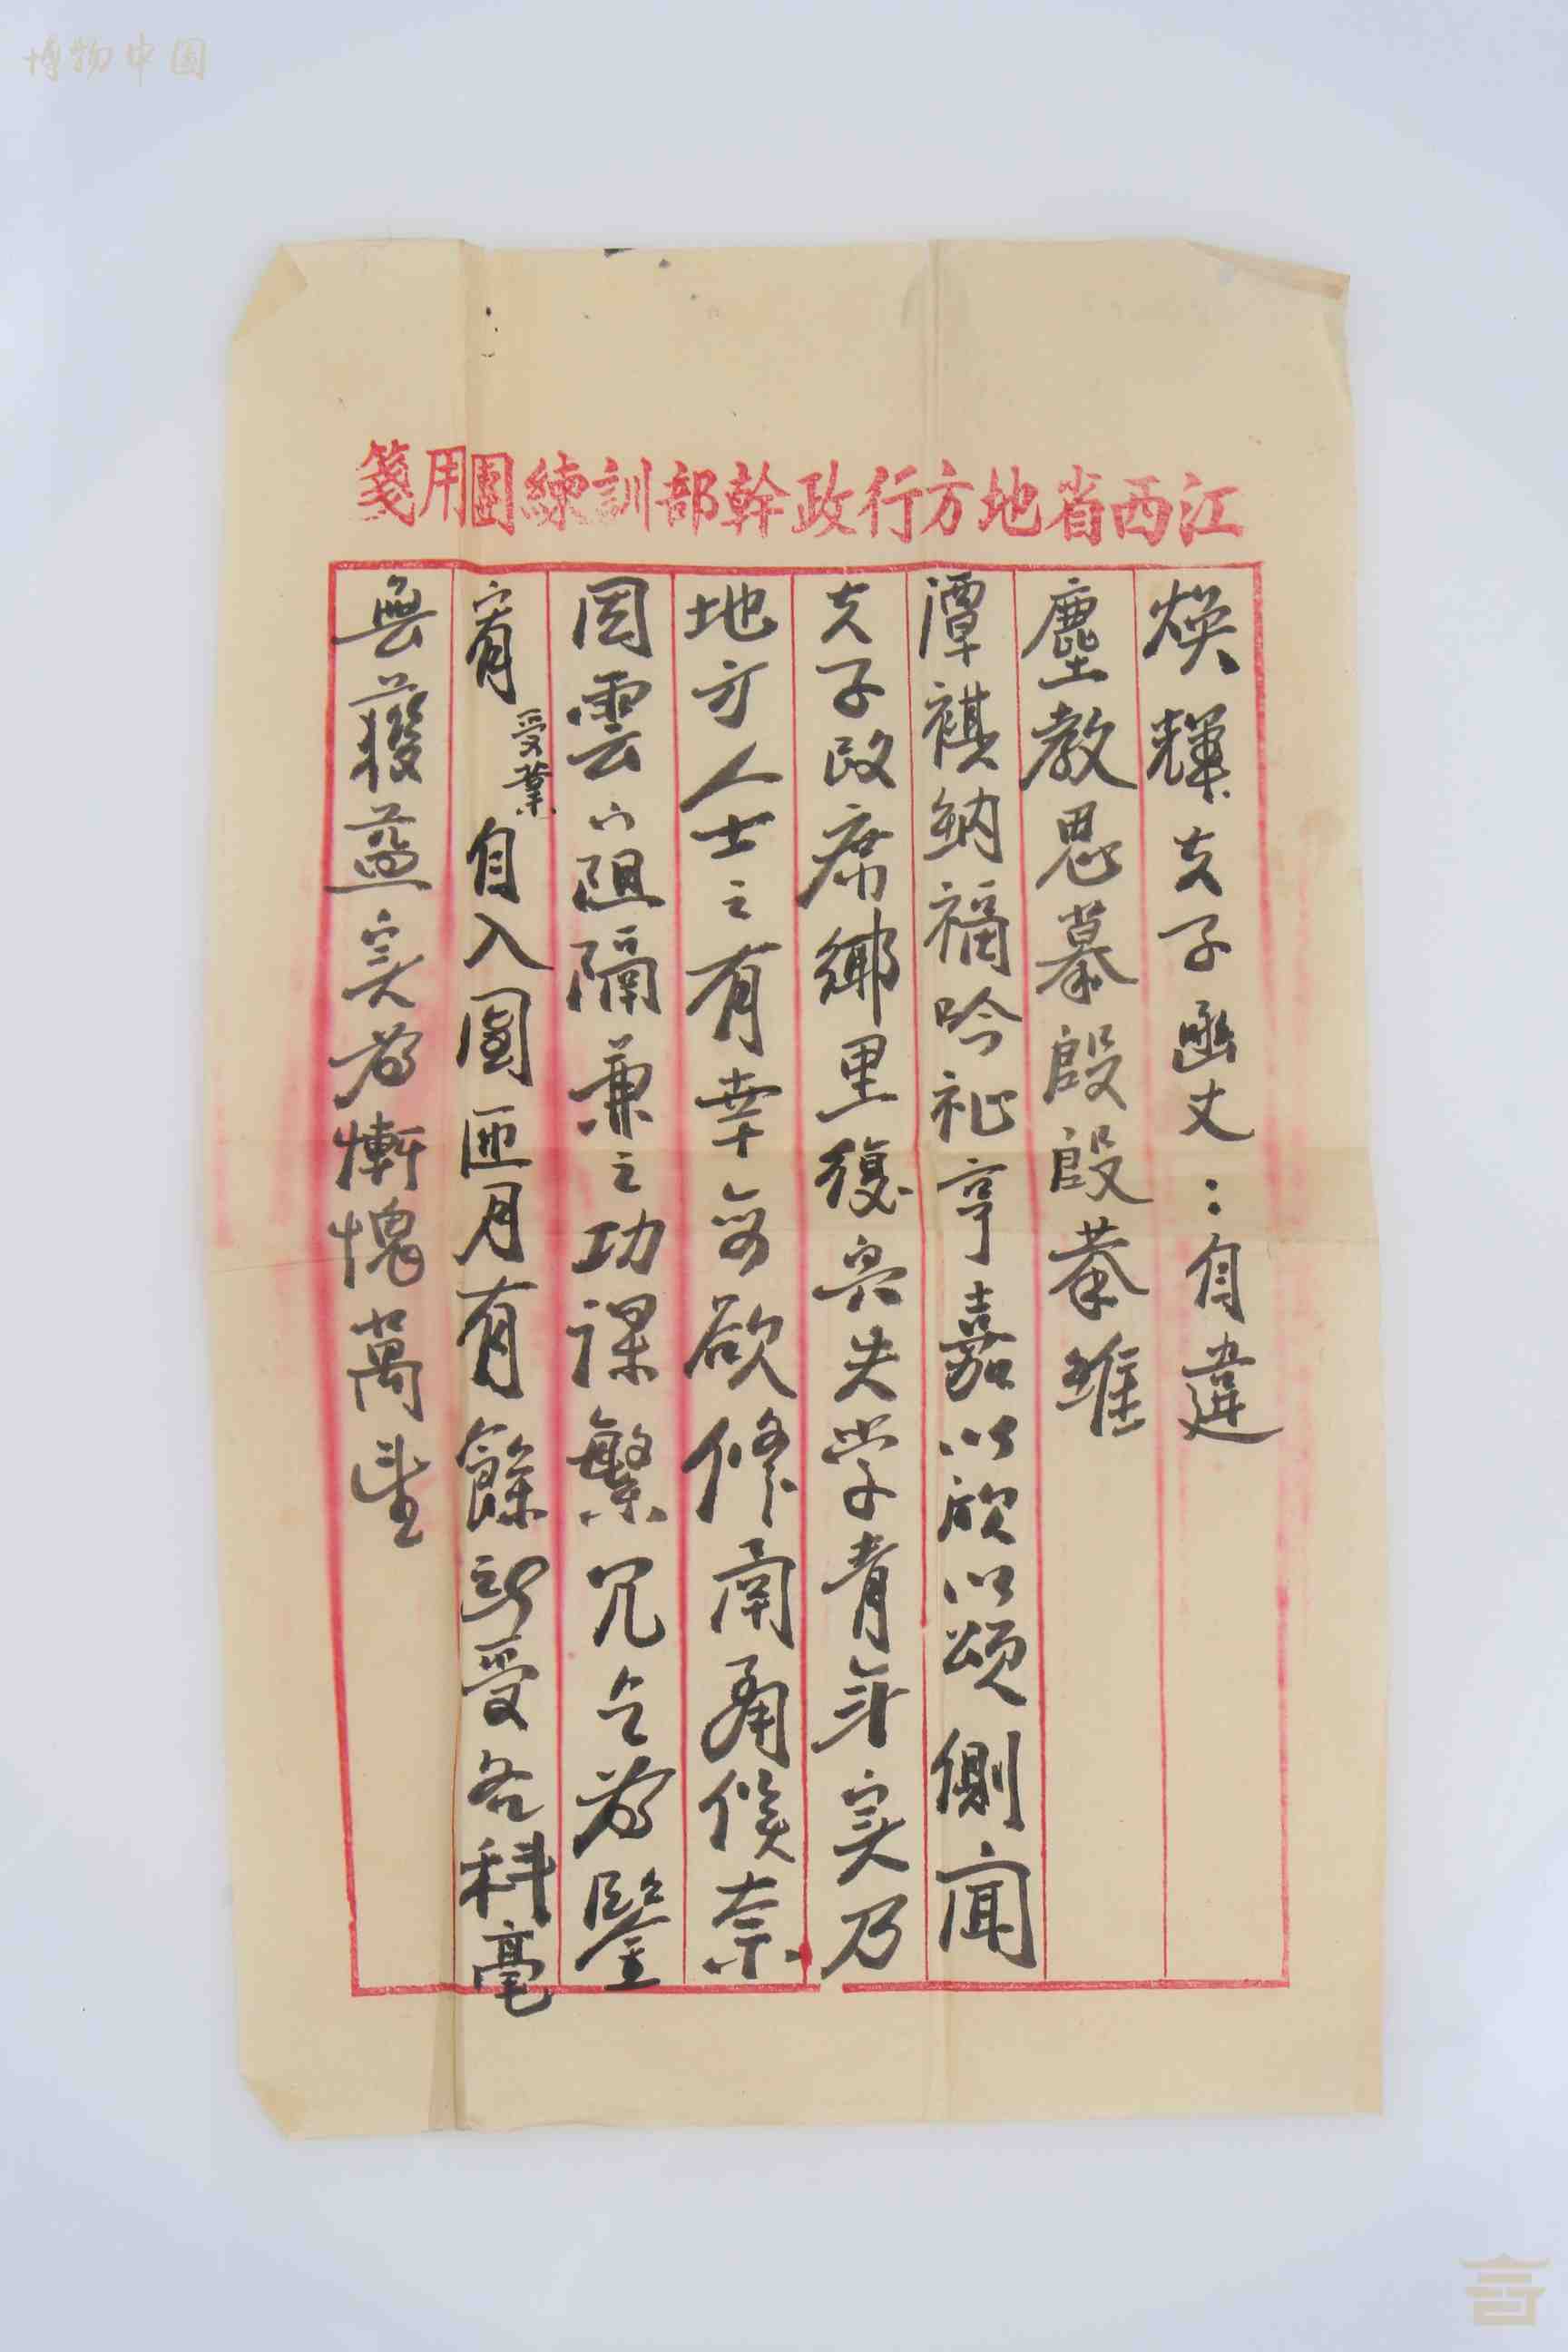 博物中国
江西省地方行政幹部訓練團用箋
煥輝夫子函丈：自違
塵教思慕殷殷恭維
潭祺納福吟祉亨嘉以欣以頌側聞
夫子政席鄉里復興失学青年实乃
地方人士之有幸每欲修肅奉候奈
因雲山阻隔兼之功課繁冗乞為鑒
宥受業自入團匝月有餘所受各科毫
無獲益实为慚愧萬望